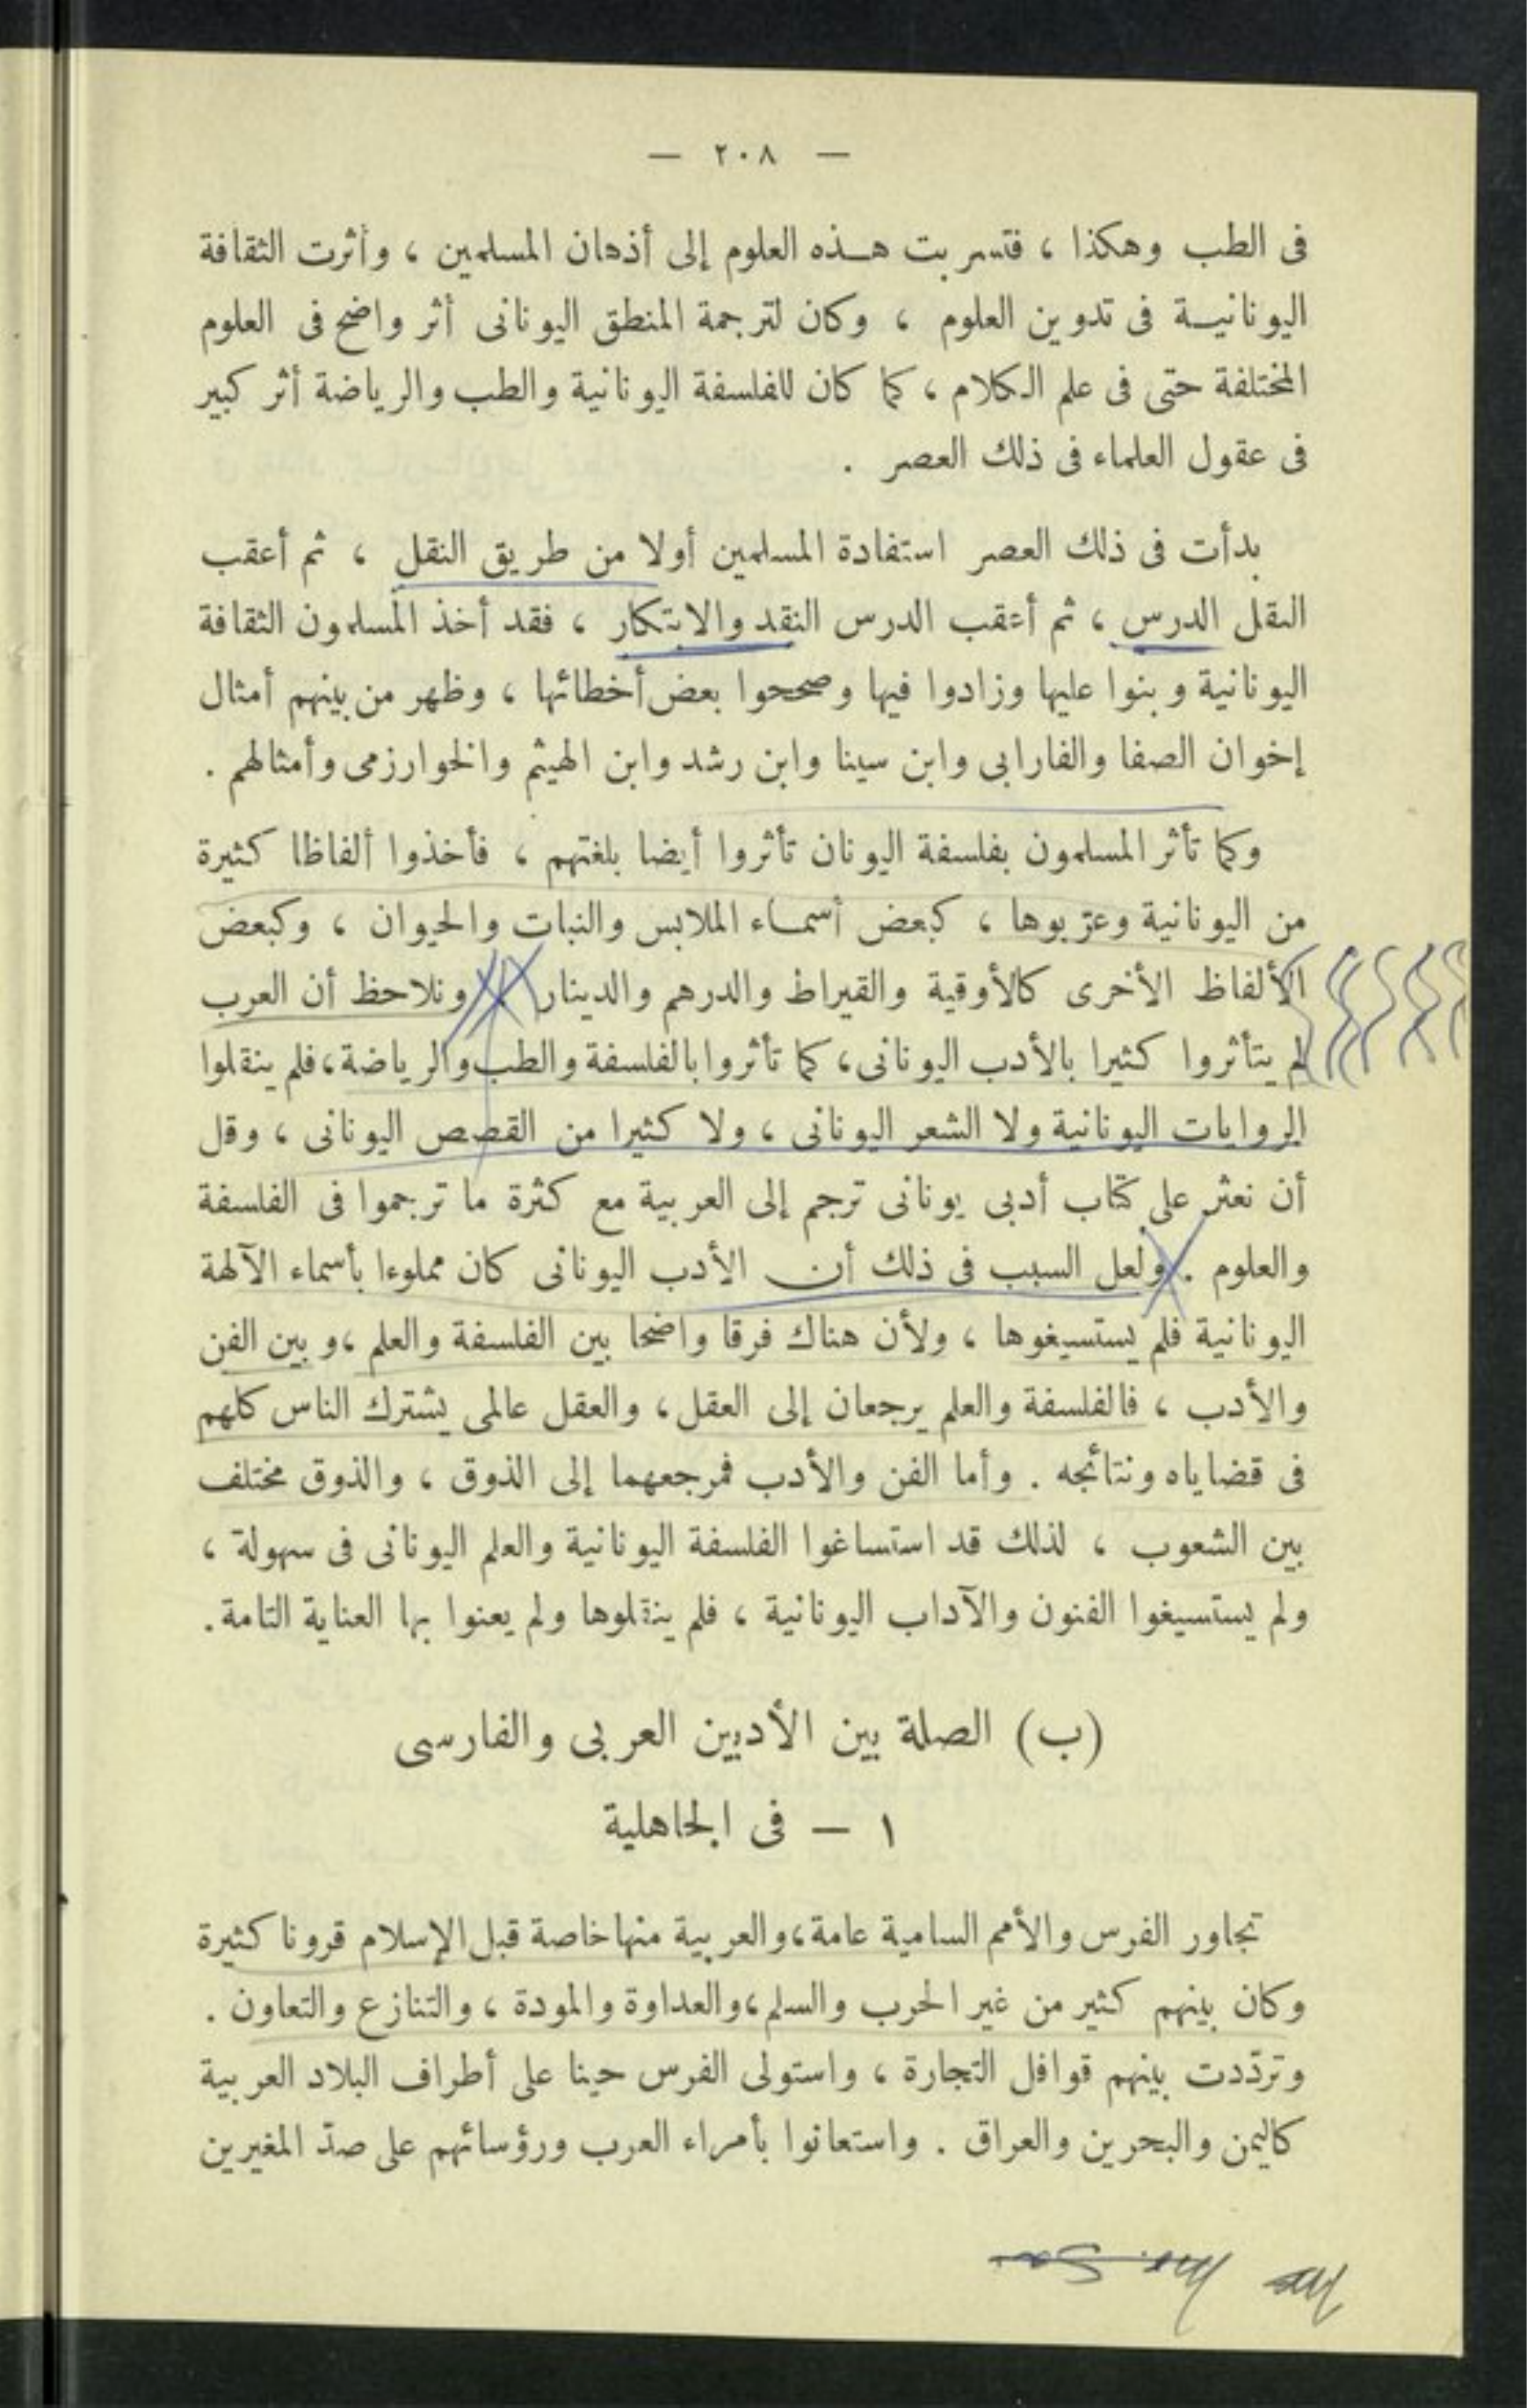 — ٢٠٨ —
فى الطب وهكذا ، فتسربت هذه العلوم إلى أذهان المسلمين ، وأثرت الثقافة
اليونانية فى تدوين العلوم ، وكان لترجمة المنطق اليونانى أثر واضح فى العلوم
المختلفة حتى فى علم الكلام ، كما كان للفلسفة اليونانية والطب والرياضة أثر كبير
فى عقول العلماء فى ذلك العصر .
بدأت فى ذلك العصر استفادة المسلمين أولا من طريق النقل ، ثم أعقب
النقل الدرس ، ثم أعقب الدرس النقد والابتكار ، فقد أخذ المسلمون الثقافة
اليونانية وبنوا عليها وزادوا فيها وصححوا بعض أخطائها ، وظهر من بينهم أمثال
إخوان الصفا والفارابى وابن سينا وابن رشد وابن الهيثم والخوارزمى وأمثالهم .
وكما تأثر المسلمون بفلسفة اليونان تأثروا أيضا بلغتهم ، فأخذوا ألفاظا كثيرة
من اليونانية وعرّبوها ، كبعض أسماء الملابس والنبات والحيوان ، وكبعض
الألفاظ الأخرى كالأوقية والقيراط والدرهم والدينار ونلاحظ أن العرب
لم يتأثروا كثيرا بالأدب اليونانى ، كما تأثروا بالفلسفة والطب والرياضة ، فلم ينقلوا
الروايات اليونانية ولا الشعر اليونانى ، ولا كثيرا من القصص اليونانى ، وقل
أن نعثر على كتاب أدبى يونانى ترجم إلى العربية مع كثرة ما ترجموا فى الفلسفة
والعلوم . ولعل السبب فى ذلك أن الأدب اليونانى كان مملوءا بأسماء الآلهة
اليونانية فلم يستسيغوها ، ولأن هناك فرقا واضحا بين الفلسفة والعلم ، وبين الفن
والأدب ، فالفلسفة والعلم يرجعان إلى العقل ، والعقل عالمى يشترك الناس كلهم
فى قضاياه ونتائجه . وأما الفن والأدب فمرجعهما إلى الذوق ، والذوق مختلف
بين الشعوب ، لذلك قد استساغوا الفلسفة اليونانية والعلم اليونانى فى سهولة ،
ولم يستسيغوا الفنون والآداب اليونانية ، فلم ينقلوها ولم يعنوا بها العناية التامة .
(ب) الصلة بين الأدبين العربى والفارسى
١ — فى الجاهلية
تجاور الفرس والأمم السامية عامة ، والعربية منها خاصة قبل الإسلام قرونا كثيرة
وكان بينهم كثير من غير الحرب والسلم ، والعداوة والمودة ، والتنازع والتعاون .
وتردّدت بينهم قوافل التجارة ، واستولى الفرس حينا على أطراف البلاد العربية
كاليمن والبحرين والعراق . واستعانوا بأمراء العرب ورؤسائهم على صدّ المغيرين